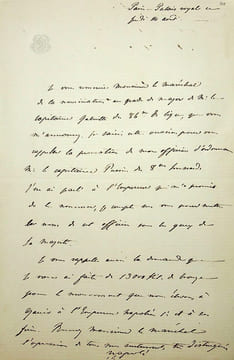 Paris - Palais royal ce
jeudi 10 août
Je vous remercie Monsieur le maréchal
de la nomination au grade de major de M. le
capitaine du 84me de ligne que vous
m'annoncez, je saisis cette occasion pour vous
rappeler la promotion de mon officier d'ordonnance
M. le capitaine du 8me
J'en ai parlé à l'Empereur qui m'a promis
de le nommer, je compte que vous soumettrez
le nom de cet officier sous les yeux de
Sa Majesté.
Je vous rappelle aussi la demande que
je vous ai fait de 1300 Kil. de bronze
pour le monument que nous élevons à
à l'Empereur Napoléon 1er et à ses
frères. Recevez monsieur le maréchal
l'expression de tous mes sentiments